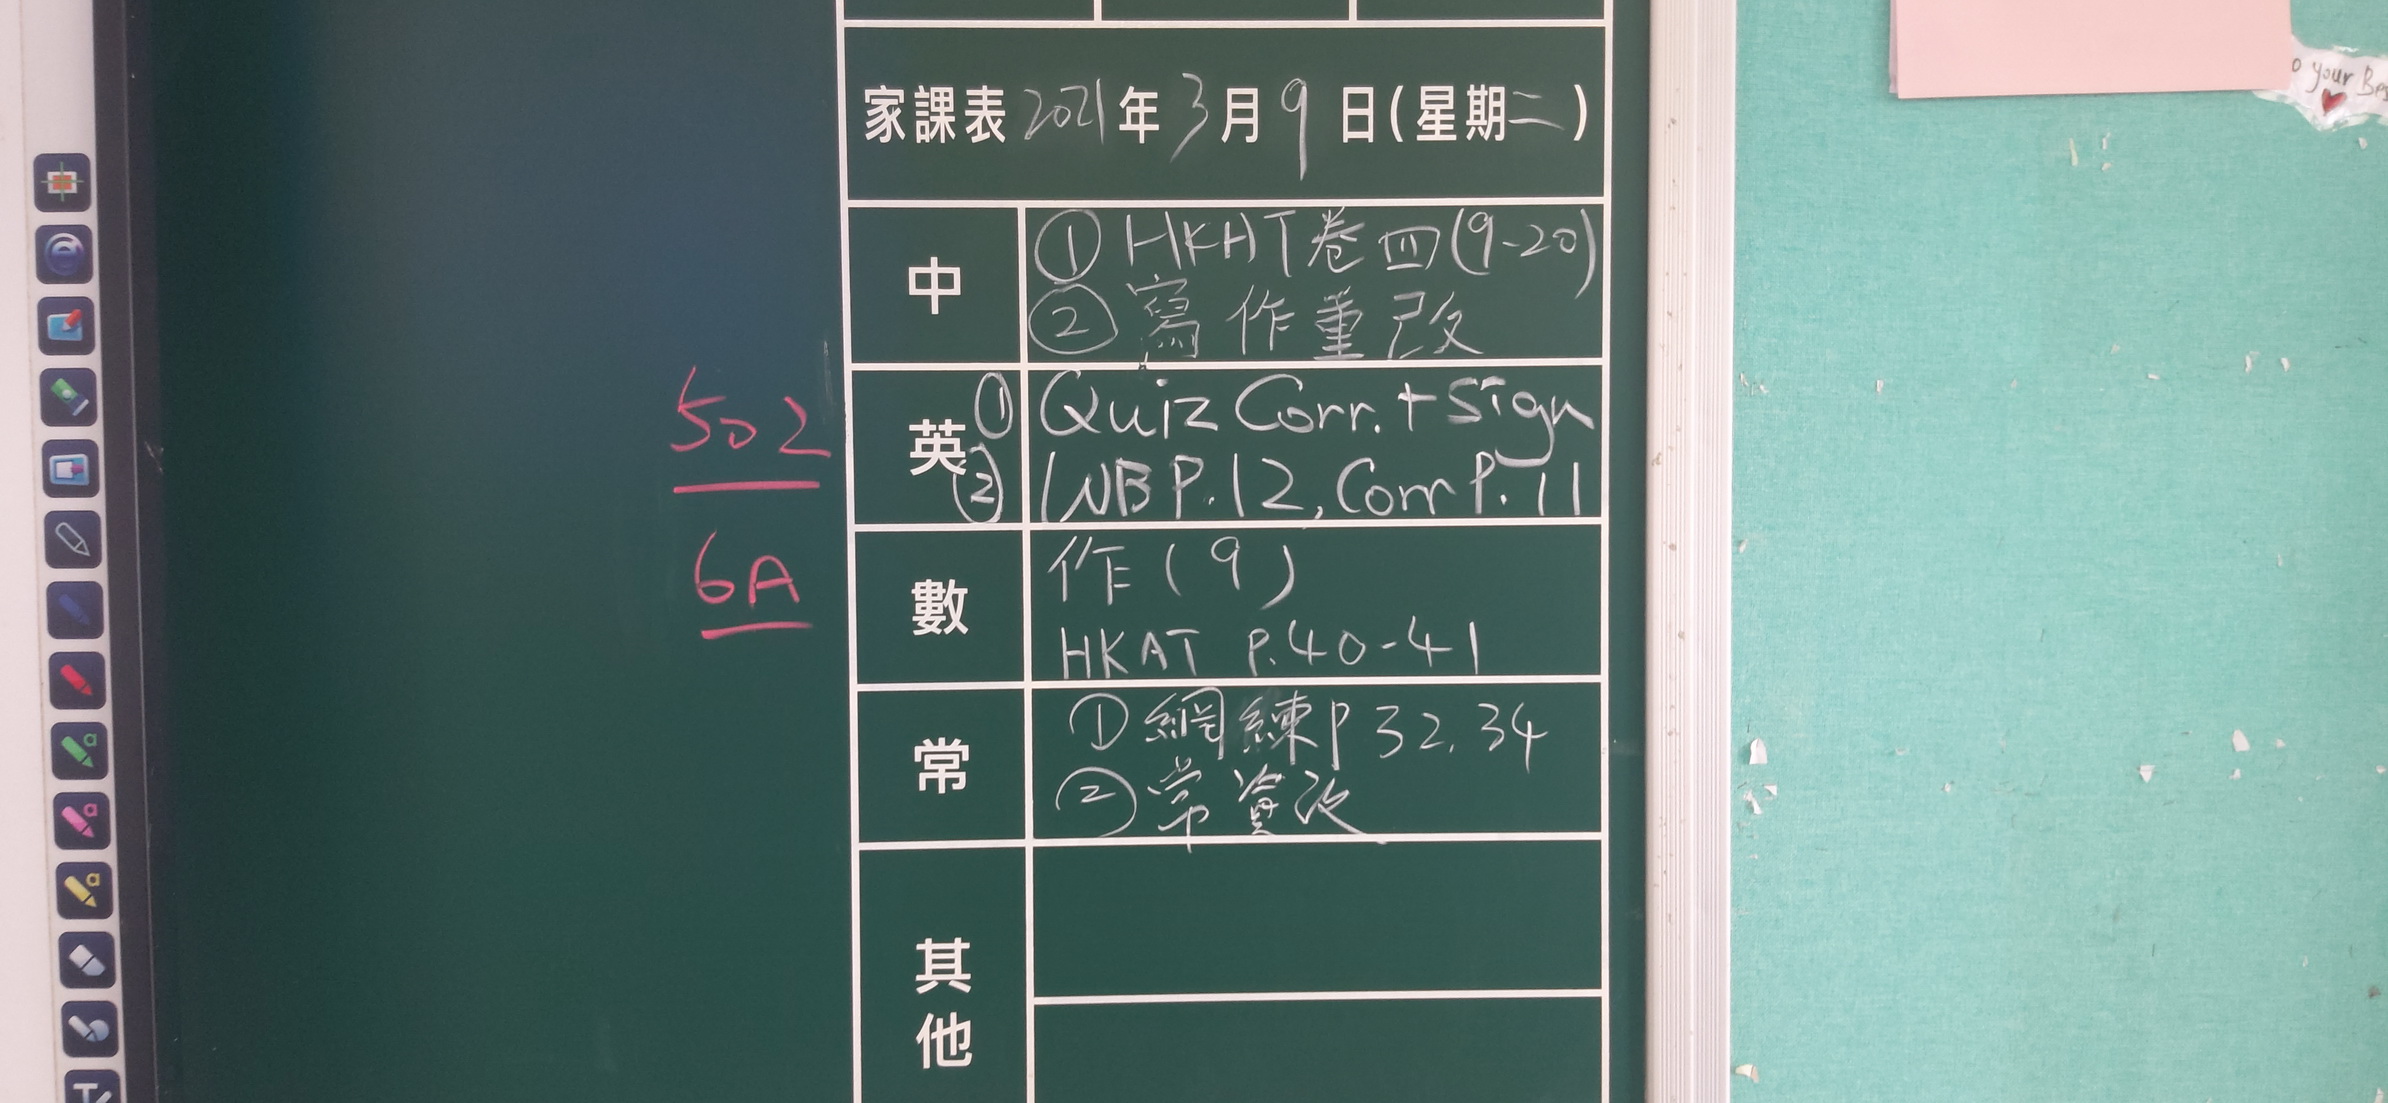 家課表 2021年3月9日(星期二)
中
① HKAT卷四(9-20)
② 寫作重改
英
① Quiz Corr. + Sign
② WB P.12, Corr P.11
數
作(9)
HKAT P.40-41
常
① 網練P32.34
② 常資改
其他
502
6A
o your Bes